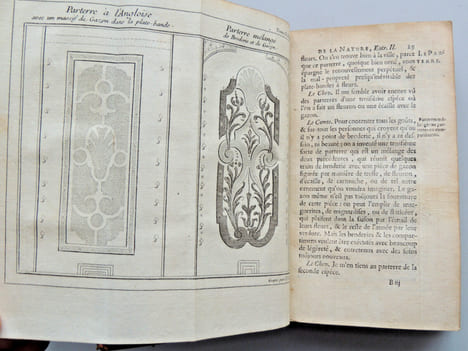 Parterre à l'Angloise
avec un massif de Gazon dans la plate-bande.
Parterre mélangé
de Broderie et de Gazon.
DE LA NATURE, Entr. II. 25
fleurs. On s'en trouve bien à la ville, parce
que ce parterre, quoique bien orné, vous
épargne le renouvellement perpétuel, &
la mal-propreté presqu'inévitable des
plate-bandes à fleurs.
Le Chev. Il me semble avoir entrevû
des parterres d'une troisième espèce où
l'on a fait un fleuron ou une écaille avec le
gazon.
Le Comte. Pour contenter tous les goûts,
& sur-tout les personnes qui croyent qu'où
il n'y a point de broderie, il n'y a ni des-
sein, ni beauté; on a inventé une troisième
sorte de parterre qui est un mélange des
deux précédentes, qui réunit quelques
traits de broderie avec une pièce de gazon
figurée par manière de tresse, de fleuron,
d'écaille, de cartouche, ou de tel autre
ornement qu'on voudra imaginer. Le ga-
zon même n'est pas toujours la fourniture
de cette pièce: on peut l'emplir de mar-
guerites, de mignardises, ou de staticées,
qui plaisent dans la saison par l'émail de
leurs fleurs, & le reste de l'année par leur
verdure. Mais les broderies & les compar-
timens veulent être exécutés avec beaucoup
de légèreté, & entretenus avec des soins
toujours nouveaux.
Le Chev. Je m'en tiens au parterre de la
seconde espèce.
B iij
LE PAR-
TERRE.